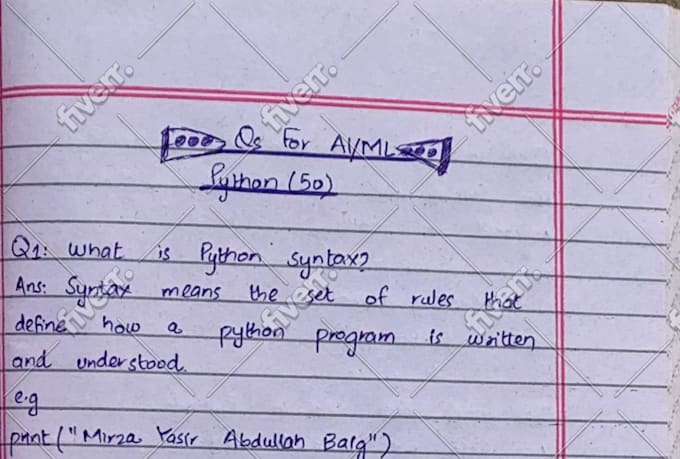 Qs For AI/ML
Python (50)
Q1: What is Python syntax?
Ans: Syntax means the set of rules that
define how a python program is written
and understood.
e.g
print ("Mirza Yasir Abdullah Baig")